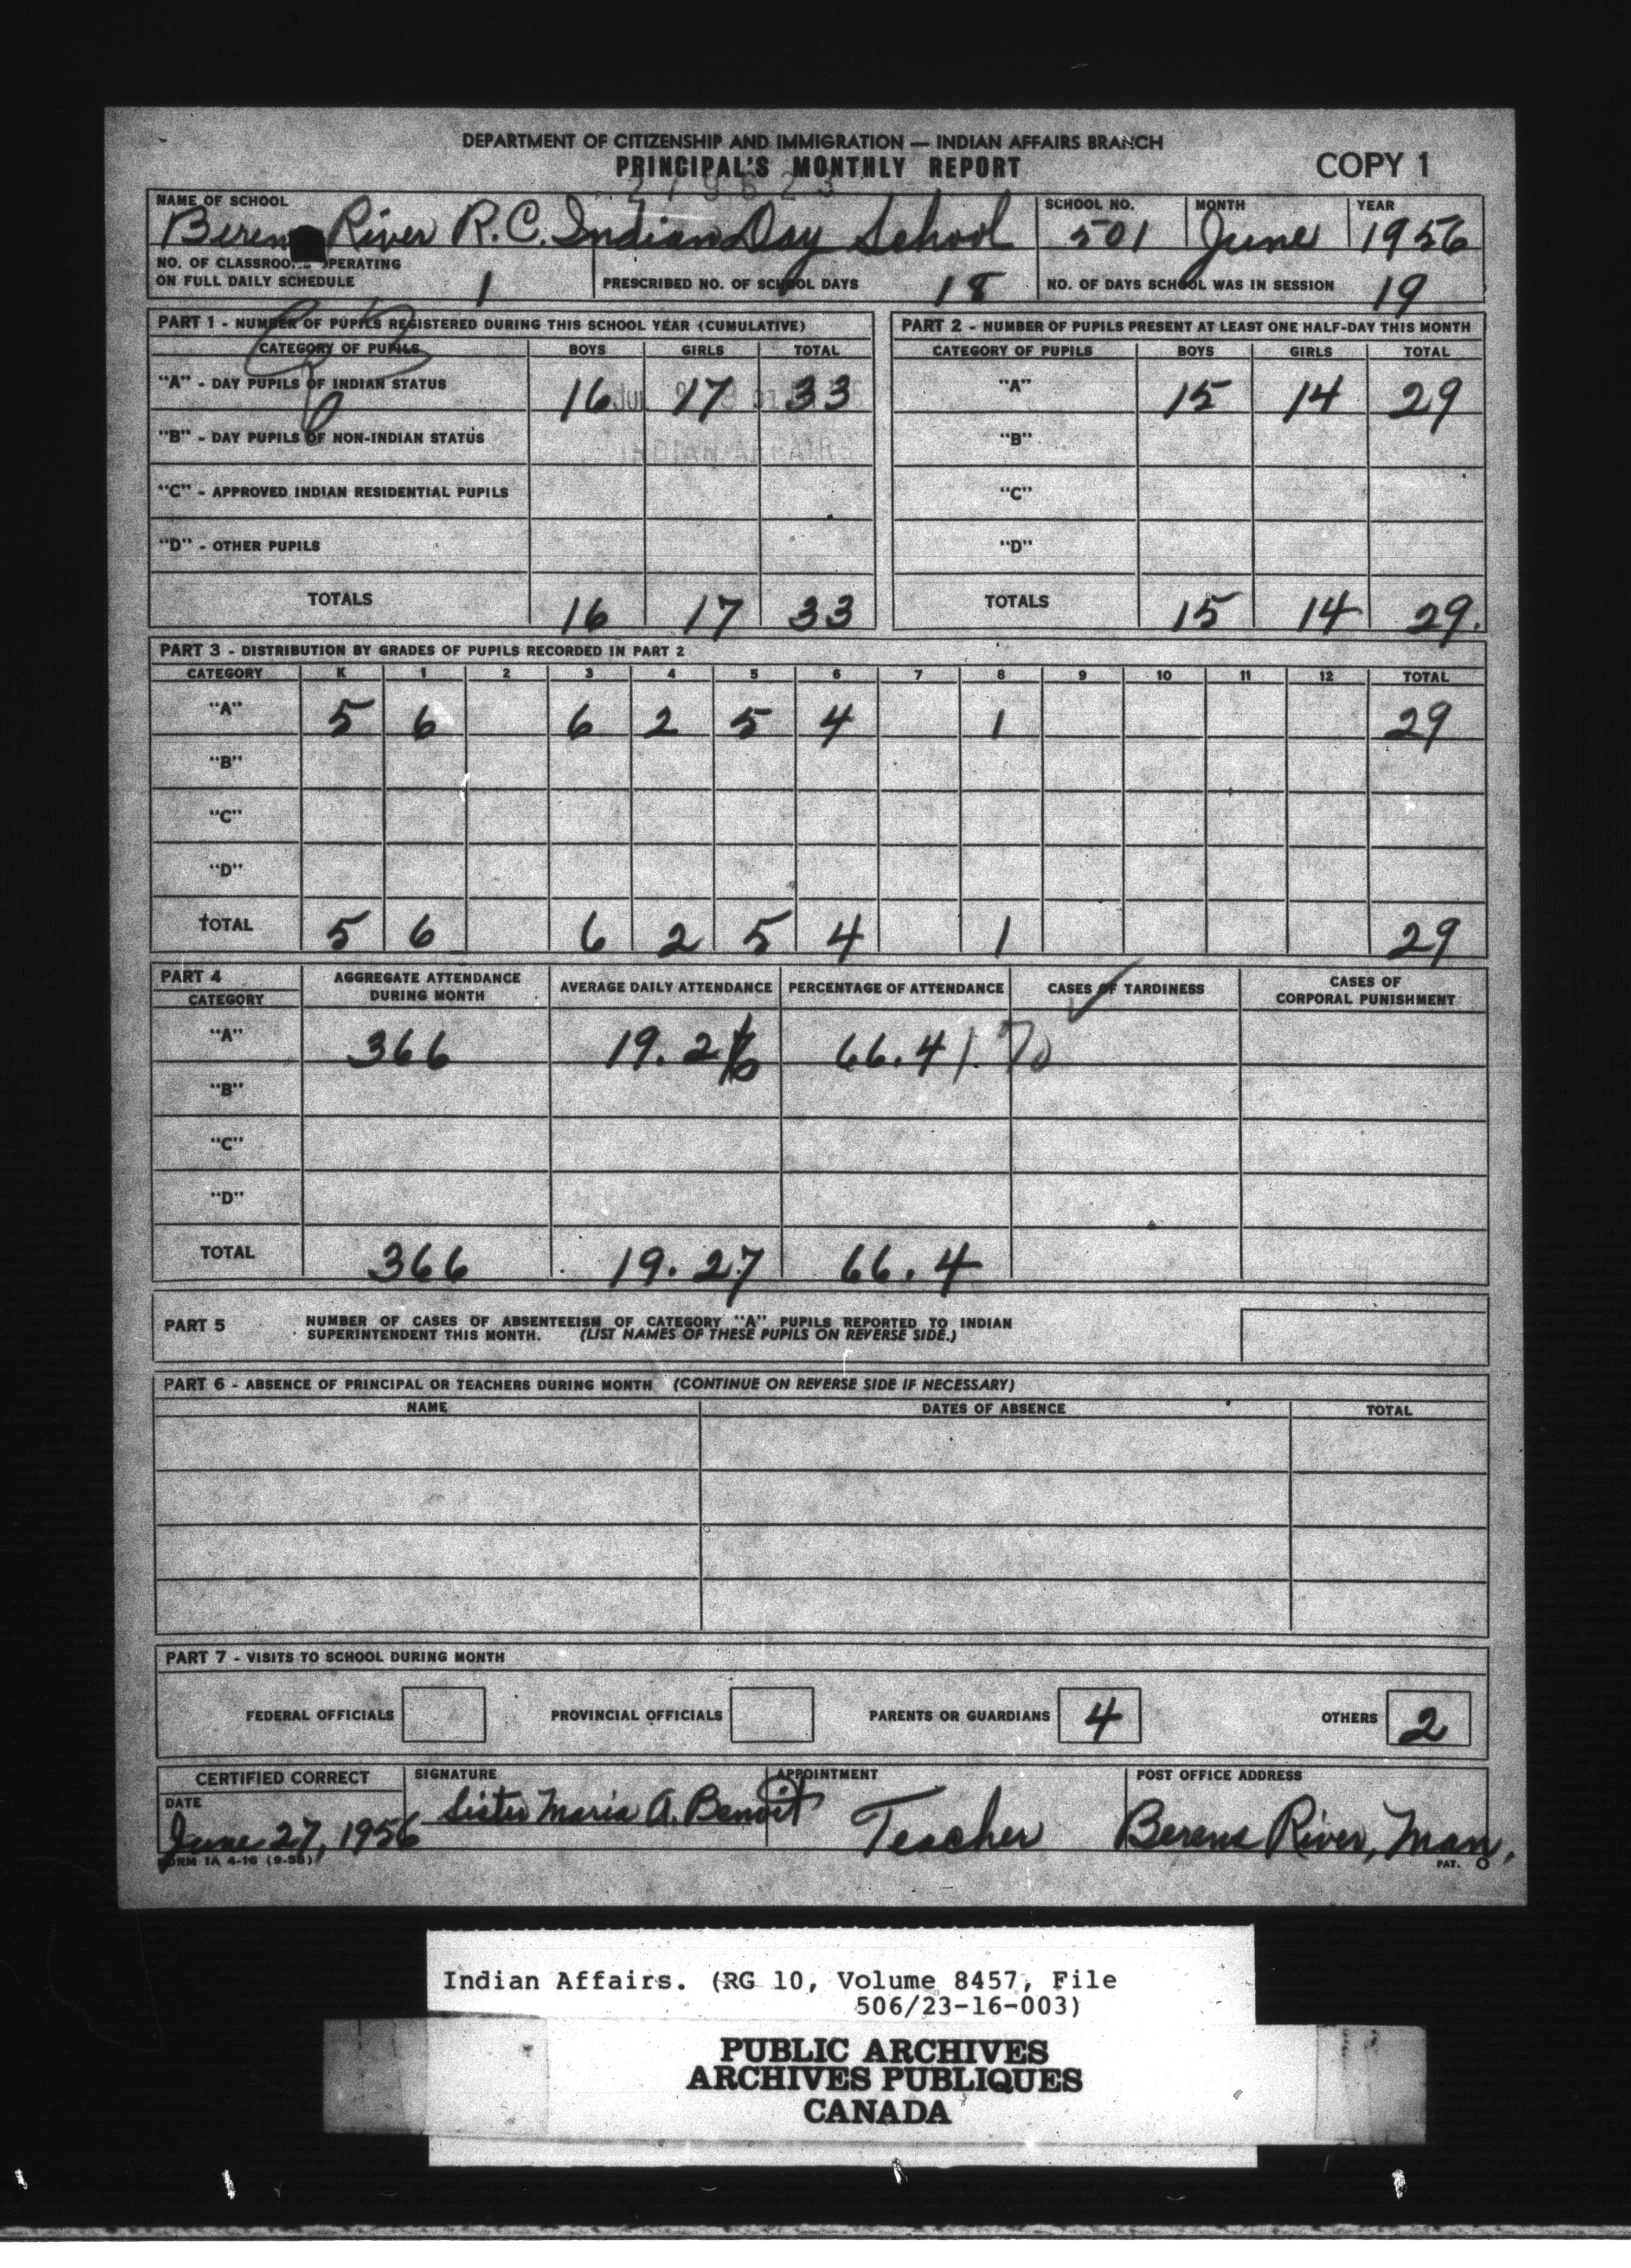 DEPARTMENT OF CITIZENSHIP AND IMMIGRATION — INDIAN AFFAIRS BRANCH
PRINCIPAL'S MONTHLY REPORT
COPY 1
NAME OF SCHOOL SCHOOL NO. MONTH YEAR
Berens River R.C. Indian Day School 501 June 1956
NO. OF CLASSROOMS OPERATING
ON FULL DAILY SCHEDULE 1 PRESCRIBED NO. OF SCHOOL DAYS 18 NO. OF DAYS SCHOOL WAS IN SESSION 19
PART 1 - NUMBER OF PUPILS REGISTERED DURING THIS SCHOOL YEAR (CUMULATIVE)
CATEGORY OF PUPILS BOYS GIRLS TOTAL
"A" - DAY PUPILS OF INDIAN STATUS 16 17 33
"B" - DAY PUPILS OF NON-INDIAN STATUS
"C" - APPROVED INDIAN RESIDENTIAL PUPILS
"D" - OTHER PUPILS
TOTALS 16 17 33
PART 2 - NUMBER OF PUPILS PRESENT AT LEAST ONE HALF-DAY THIS MONTH
CATEGORY OF PUPILS BOYS GIRLS TOTAL
"A" 15 14 29
"B"
"C"
"D"
TOTALS 15 14 29.
PART 3 - DISTRIBUTION BY GRADES OF PUPILS RECORDED IN PART 2
CATEGORY K 1 2 3 4 5 6 7 8 9 10 11 12 TOTAL
"A" 5 6 6 2 5 4 1 29
"B"
"C"
"D"
TOTAL 5 6 6 2 5 4 1 29
PART 4
CATEGORY
AGGREGATE ATTENDANCE
DURING MONTH
AVERAGE DAILY ATTENDANCE PERCENTAGE OF ATTENDANCE CASES OF TARDINESS
CASES OF
CORPORAL PUNISHMENT
"A" 366 19.26 66.4 %
"B"
"C"
"D"
TOTAL 366 19.27 66.4
PART 5 NUMBER OF CASES OF ABSENTEEISM OF CATEGORY "A" PUPILS REPORTED TO INDIAN
SUPERINTENDENT THIS MONTH. (LIST NAMES OF THESE PUPILS ON REVERSE SIDE.)
PART 6 - ABSENCE OF PRINCIPAL OR TEACHERS DURING MONTH (CONTINUE ON REVERSE SIDE IF NECESSARY)
NAME DATES OF ABSENCE TOTAL
PART 7 - VISITS TO SCHOOL DURING MONTH
FEDERAL OFFICIALS PROVINCIAL OFFICIALS PARENTS OR GUARDIANS 4 OTHERS 2
CERTIFIED CORRECT SIGNATURE APPOINTMENT POST OFFICE ADDRESS
DATE
June 27, 1956 Sister Maria A. Benoit Teacher Berens River, Man.
FORM 1A 4-16 (9-55) PAT.
Indian Affairs. (RG 10, Volume 8457, File
506/23-16-003)
PUBLIC ARCHIVES
ARCHIVES PUBLIQUES
CANADA